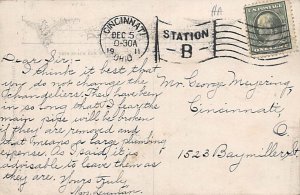 CINCINNATI
DEC 5
9-30A
19 11
OHIO
STATION
B
Dear Sir:-
I think it best that
we do not change the
Chandeliers. They have been
in so long that I fear the
main pipe will be broken
if they are removed and
that means a large plumbing
expense. As I said, it's
advisable to leave them as
they are. Yours Truly,
Mrs.
Mr. George Meyring
Cincinnati,
O.
1523 Baymiller St.